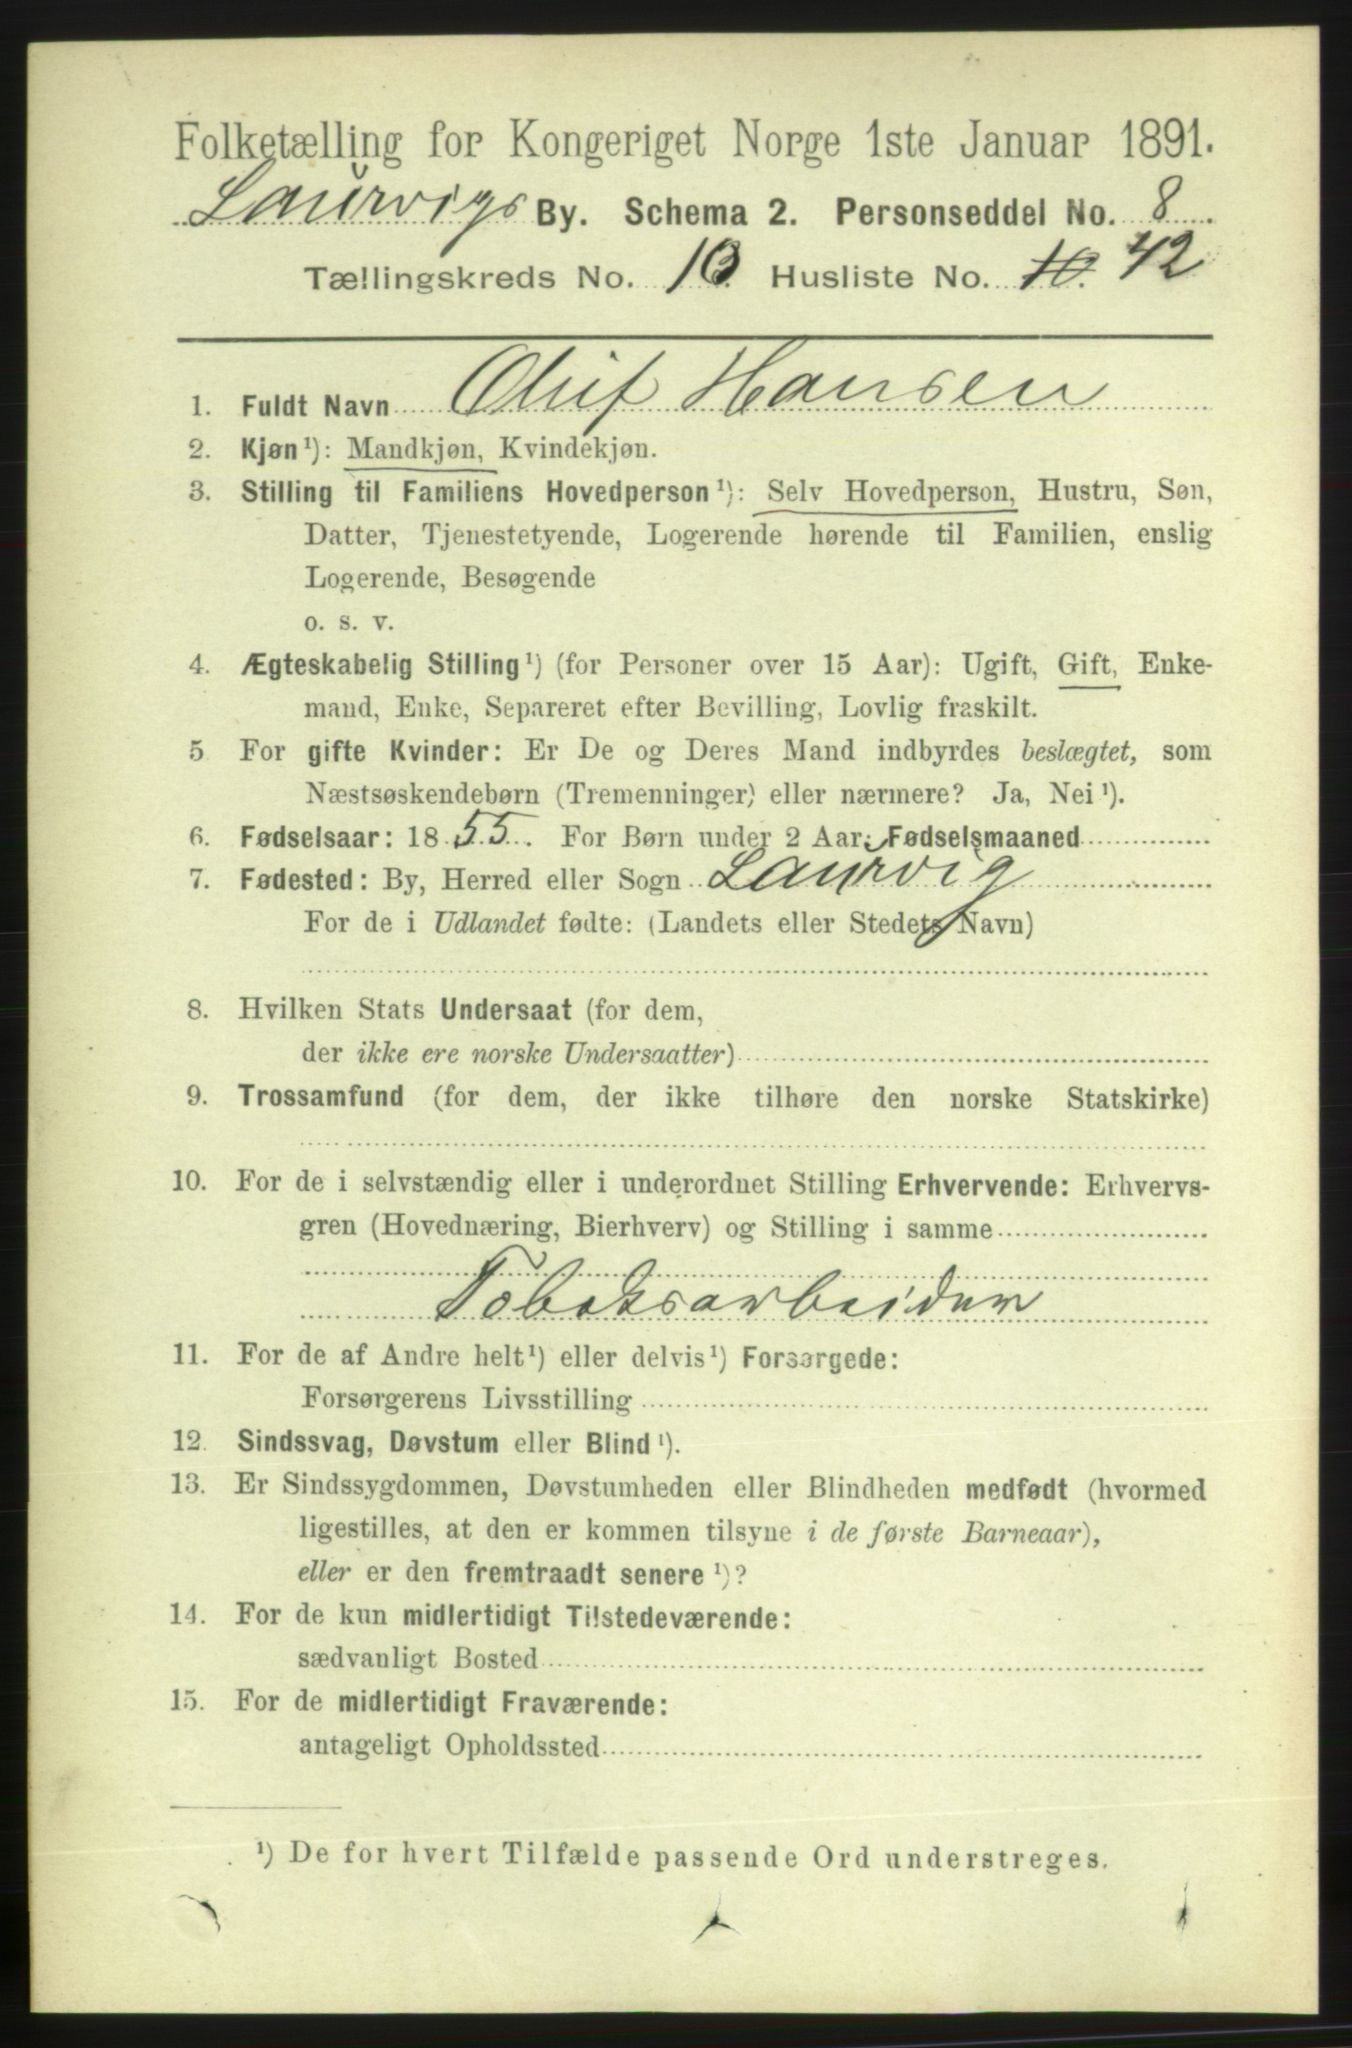 Folketælling for Kongeriget Norge 1ste Januar 1891.
Laurvigs By. Schema 2. Personseddel No. 8.
Tællingskreds No. 10 Husliste No. 10. 42
1. Fuldt Navn Oluf Hansen
2. Kjøn ¹): Mandkjøn, Kvindekjøn.
3. Stilling til Familiens Hovedperson ¹): Selv Hovedperson, Hustru, Søn,
Datter, Tjenestetyende, Logerende hørende til Familien, enslig
Logerende, Besøgende
o. s. v.
4. Ægteskabelig Stilling ¹) (for Personer over 15 Aar): Ugift, Gift, Enke-
mand, Enke, Separeret efter Bevilling, Lovlig fraskilt.
5 For gifte Kvinder: Er De og Deres Mand indbyrdes beslægtet, som
Næstsøskendebørn (Tremenninger) eller nærmere? Ja, Nei ¹).
6. Fødselsaar: 1855. For Børn under 2 Aar: Fødselsmaaned
7. Fødested: By, Herred eller Sogn Laurvig
For de i Udlandet fødte: (Landets eller Stedets Navn)
8. Hvilken Stats Undersaat (for dem,
der ikke ere norske Undersaatter)
9. Trossamfund (for dem, der ikke tilhøre den norske Statskirke)
10. For de i selvstændig eller i underordnet Stilling Erhvervende: Erhvervs-
gren (Hovednæring, Bierhverv) og Stilling i samme
Tobaksarbeider
11. For de af Andre helt ¹) eller delvis ¹) Forsørgede:
Forsørgerens Livsstilling
12. Sindssvag, Døvstum eller Blind ¹).
13. Er Sindssygdommen, Døvstumheden eller Blindheden medfødt (hvormed
ligestilles, at den er kommen tilsyne i de første Barneaar),
eller er den fremtraadt senere ¹)?
14. For de kun midlertidigt Tilstedeværende:
sædvanligt Bosted
15. For de midlertidigt Fraværende:
antageligt Opholdssted
¹) De for hvert Tilfælde passende Ord understreges.